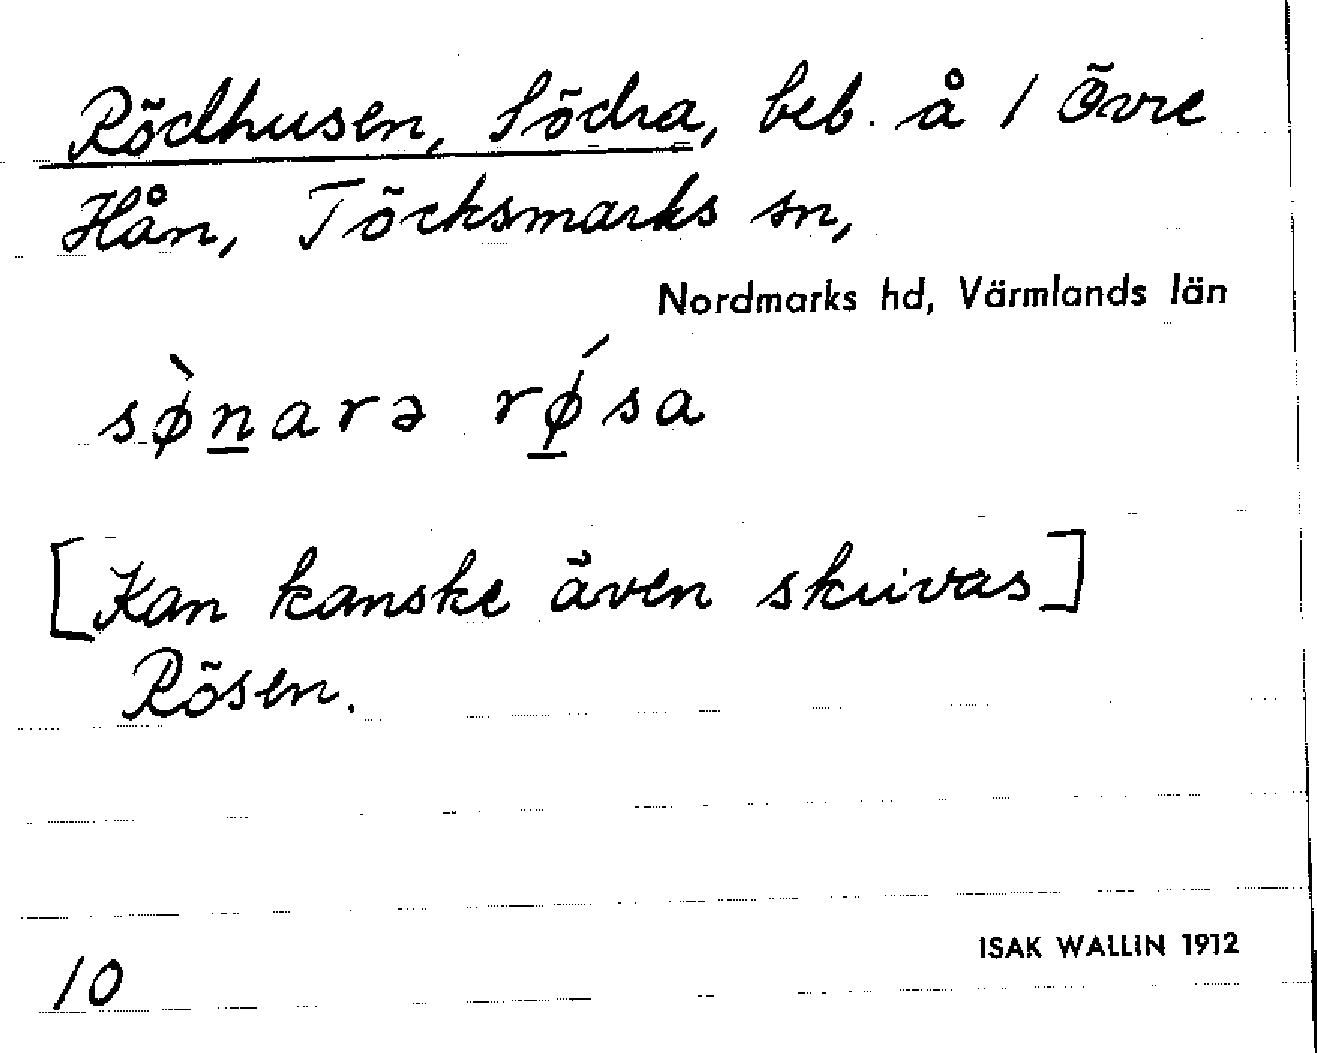 Rödhusen, Södra, beb. å 1 Övre
Hån, Töcksmarks sn,
Nordmarks hd, Värmlands län
sø̀n̲arə rǿ̲sa
[Kan kanske även skrivas]
Rösen.
ISAK WALLIN 1912
10